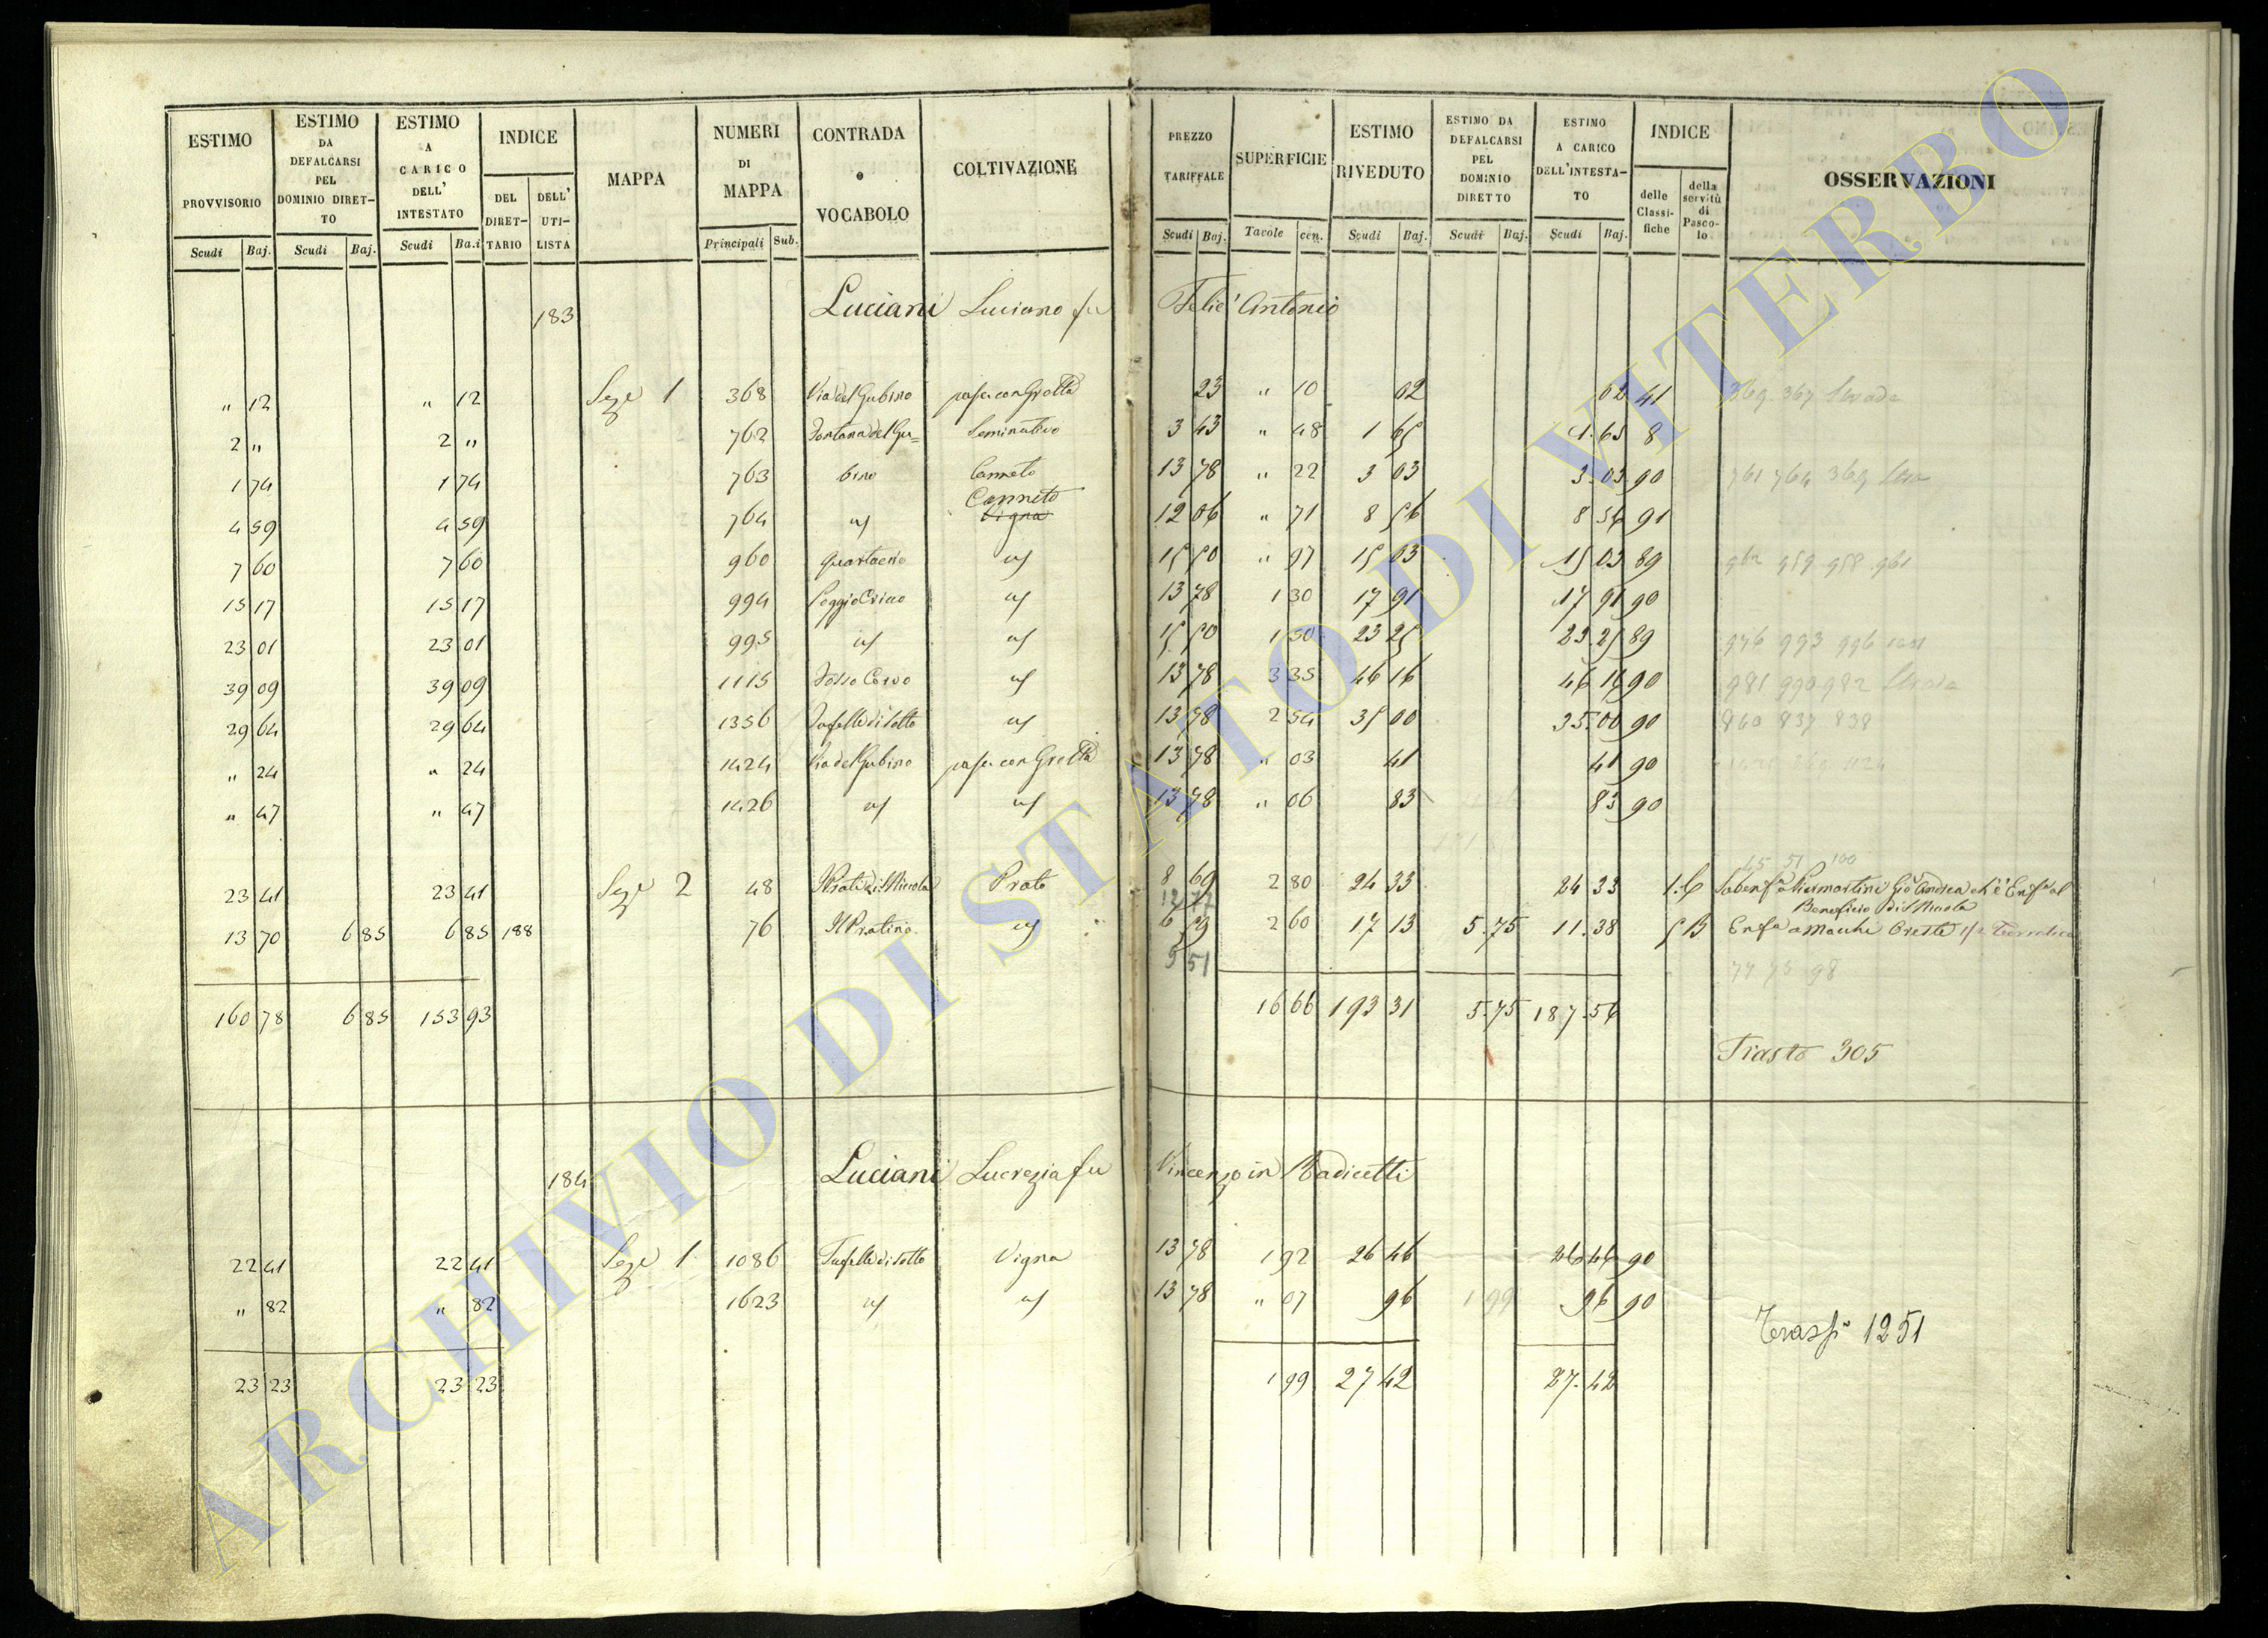 ESTIMO PROVVISORIO Scudi Baj.
ESTIMO DA DEFALCARSI PEL DOMINIO DIRET–TO Scudi Baj.
ESTIMO A CARICO DELL' INTESTATO Scudi Ba.i
INDICE DEL DIRET–TARIO DELL' UTI–LISTA
MAPPA
NUMERI DI MAPPA Principali Sub.
CONTRADA o VOCABOLO
COLTIVAZIONE
PREZZO TARIFFALE Scudi Baj.
SUPERFICIE Tavole cen.
ESTIMO RIVEDUTO Scudi Baj.
ESTIMO DA DEFALCARSI PEL DOMINIO DIRETTO Scudi Baj.
ESTIMO A CARICO DELL'INTESTA–TO Scudi Baj.
INDICE delle Classi-fiche della servitù di Pasco-lo
OSSERVAZIONI
183 Luciani Luciano fu Felic' Antonio
" 12 " 12 Seze 1 368 Via del Gubino 23 " 10 02 02 41 369. 367 Strada
2 " 2 " 762 Fontana del Gu= Seminativo 3 43 " 48 1 65 1.65 8
1 74 1 74 763 bino Canneto 13 78 " 22 3 03 3.03 90 761 764 369
4 59 4 59 764 Canneto Vigna 12 06 " 71 8 56 8 56 91
7 60 7 60 960 15 50 " 97 15 03 15 03 89 962 959 958 961
15 17 15 17 994 13 78 1 30 17 91 17 91 90
23 01 23 01 995 15 50 1 50 23 25 23.25 89 993 996
39 09 39 09 1115 Fosso Corvo 13 78 3 35 46 16 46 16 90 981 990 982 Strada
29 64 29 64 1356 13 78 2 54 35 00 35.00 90 860 837 838
" 24 " 24 1424 Via del Gubino 13 78 " 03 41 41 90
" 47 " 47 1426 13 78 " 06 83 83 90
45 51 100
23 41 23 41 Seze 2 48 Prato 8 69 2 80 24 33 24 33 Gio Andrea
12 77 Beneficio di
13 70 6 85 6 85 188 76 Il Pratino 6 59 2 60 17 13 5.75 11.38 5 B Enfa a Macchi Oreste
5 51 77 75 98
160 78 6 85 153 93 16 66 193 31 5.75 187.56
Trasto 305
184 Luciani Lucrezia fu Vincenzo in Radicetti
22 41 22 41 Seze 1 1086 Vigna 13 78 1 92 26 46 26 46 90
" 82 " 82 1623 13 78 " 07 96 1 99 96 90
1251
23 23 23 23 1 99 27 42 27.42
ARCHIVIO DI STATO DI VITERBO